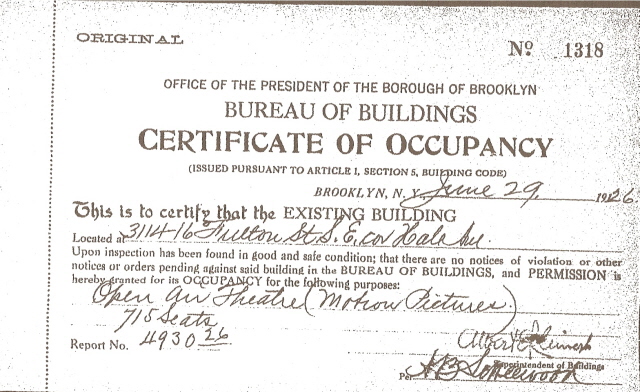 ORIGINAL
No 1318
OFFICE OF THE PRESIDENT OF THE BOROUGH OF BROOKLYN
BUREAU OF BUILDINGS
CERTIFICATE OF OCCUPANCY
(ISSUED PURSUANT TO ARTICLE 1, SECTION 5, BUILDING CODE)
BROOKLYN, N. Y. June 29, 1926
This is to certify that the EXISTING BUILDING
Located at 3114-16 Fulton St S. E. cor Hale Ave.
Upon inspection has been found in good and safe condition; that there are no notices of violation or other
notices or orders pending against said building in the BUREAU OF BUILDINGS, and PERMISSION is
hereby granted for its OCCUPANCY for the following purposes:
Open Air Theatre (Motion Pictures)
715 Seats
Report No. 4930 26
Albert E.
Superintendent of Buildings
Per